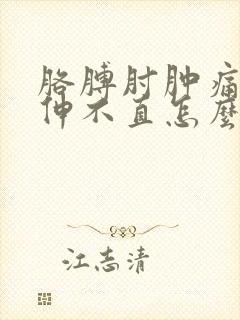 胳膊肘肿痛
伸不直怎麽
江志清